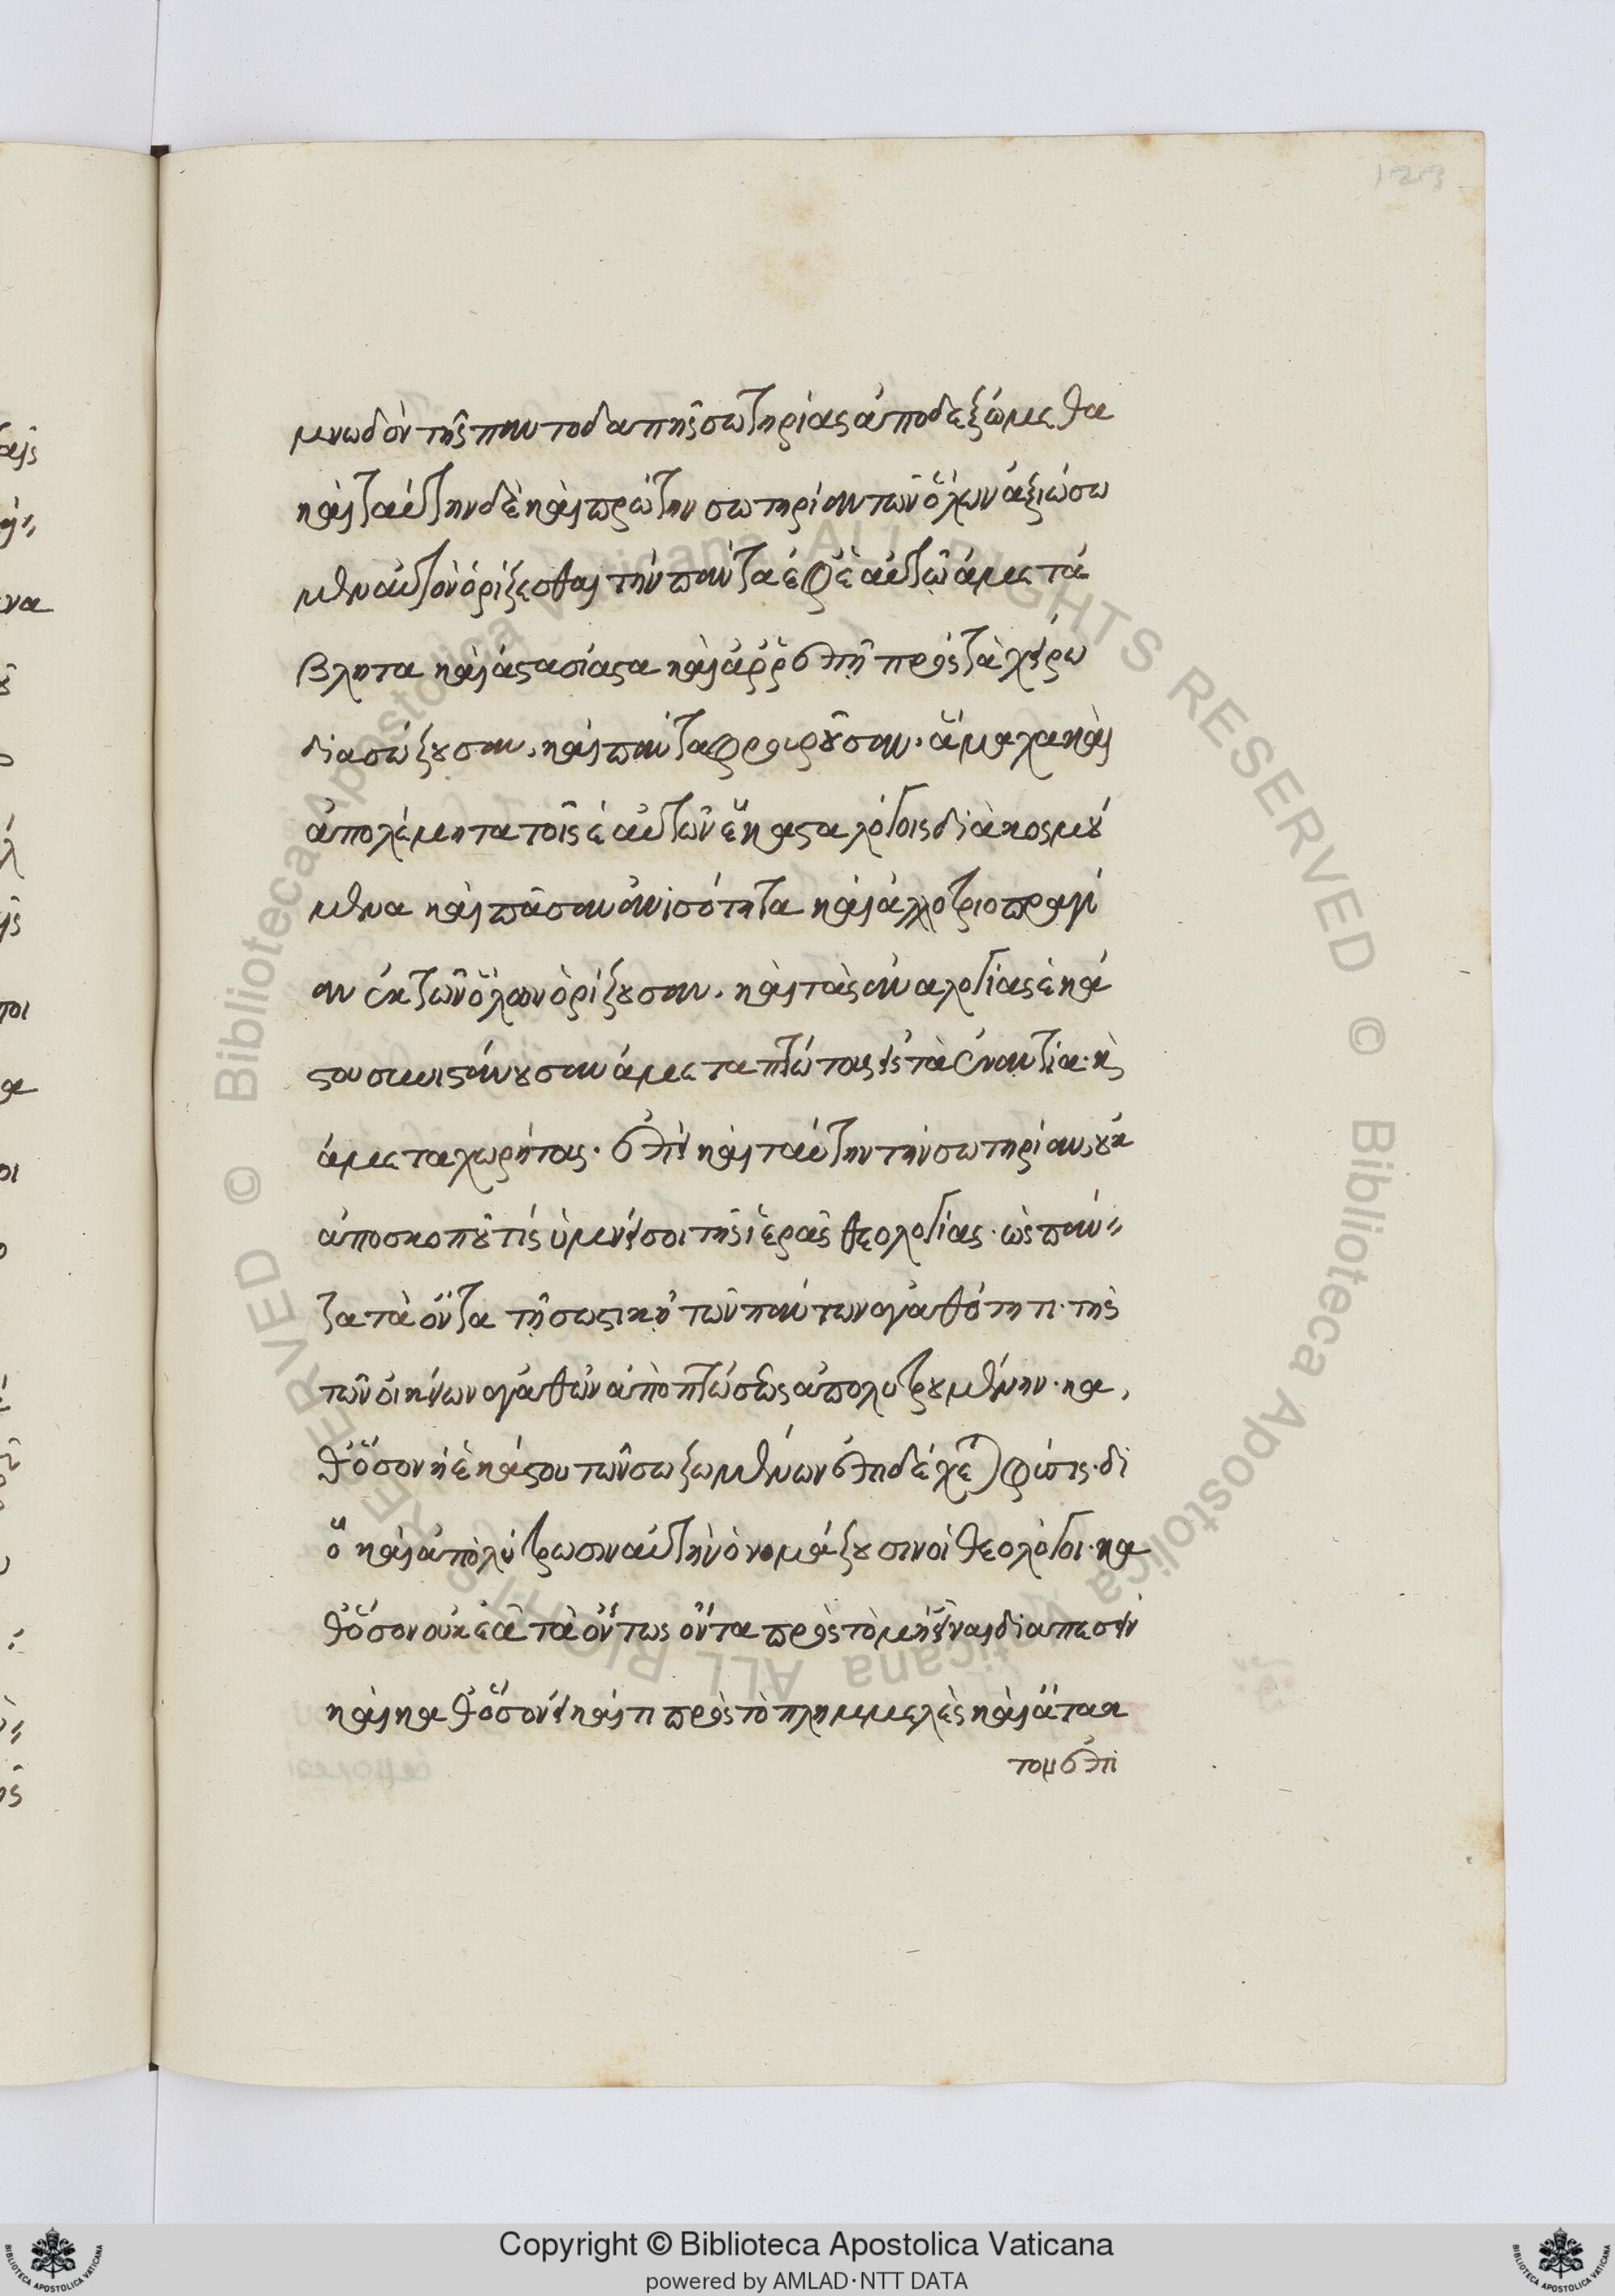 129
μνωδὸν τῆς παντοδαπῆς σωτηρίας ἀποδεξώμεθα
καὶ ταύτην δὲ καὶ πρώτην σωτηρίαν τῶν ὅλων ἀξιώσω
μεν αὐτὸν ὁρίζεσθαι τὴν πάντα ἐφ' ἑαυτῶν ἀμετά
βλητα καὶ ἀστασίαστα καὶ ἀρρεπῆ πρὸς τὰ χείρω
διασώζουσαν, καὶ πάντα φρουροῦσαν. ἄμαχα καὶ
ἀπολέμητα τοῖς ἑαυτῶν ἕκαστα λόγοις διακοσμού
μενα καὶ πᾶσαν ἀνισότητα καὶ ἀλλοτριοπραγί
αν ἐκ τῶν ὅλων ὁρίζουσαν. καὶ τὰς ἀναλογίας ἑκά
στου συνιστάνουσαν ἀμεταπτώτους εἰς τὰ ἐναντία. καὶ
ἀμεταχωρήτους. ἐπεὶ καὶ ταύτην τὴν σωτηρίαν, οὐκ
ἀποσκοποῦ τίς ὑμνήσοι τῆς ἱερᾶς θεολογίας. ὡς πάν
τα τὰ ὄντα τῇ σωστικῇ τῶν πάντων ἀγαθότητι. τῆς
τῶν οἰκείων ἀγαθῶν ἀποπτώσεως ἀπολυτρουμένην. κα
θόσον ἡ ἑκάστου τῶν σωζομένων ἐπιδέχεται φύσις. δι
ὃ καὶ ἀπολύτρωσιν αὐτὴν ὀνομάζουσιν οἱ θεολόγοι. κα
θόσον οὐκ ἐᾷ τὰ ὄντως ὄντα πρὸς τὸ μὴ εἶναι διαπεσεῖν
καὶ καθόσον εἰ καί τι πρὸς τὸ πλημμελὲς καὶ ἄτακ
τον ἐπι
Copyright © Biblioteca Apostolica Vaticana
powered by AMLAD·NTT DATA